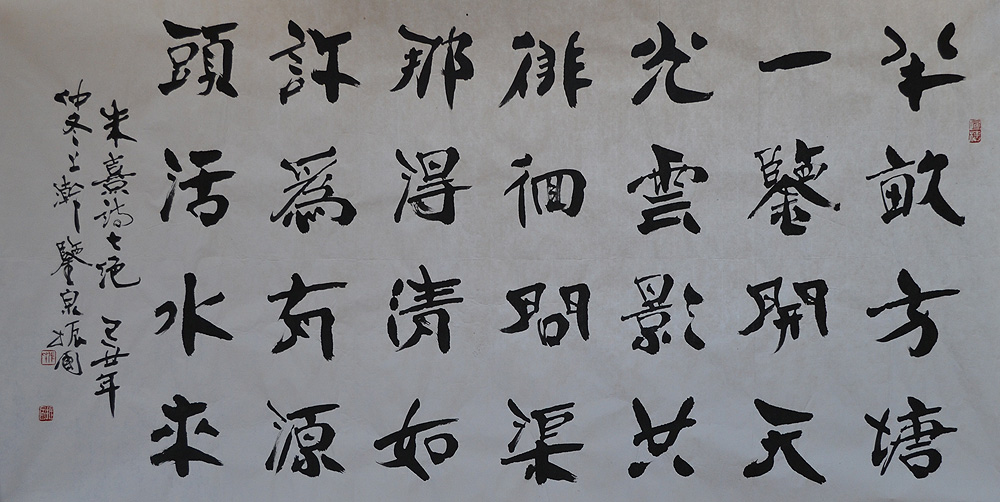 半畝方塘
一鑒開天
光雲影共
徘徊問渠
那得清如
許為有源
頭活水來
朱熹詩七絕 己丑年
仲冬上澣鑒泉振國